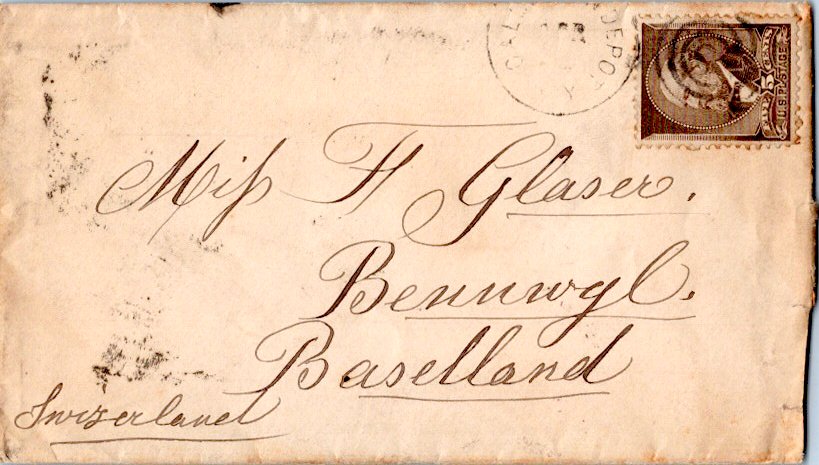 DEPOT
FIVE 5 CENTS
U.S. POSTAGE
Miss F Glaser.
Bennwyl.
Baselland
Swizerland